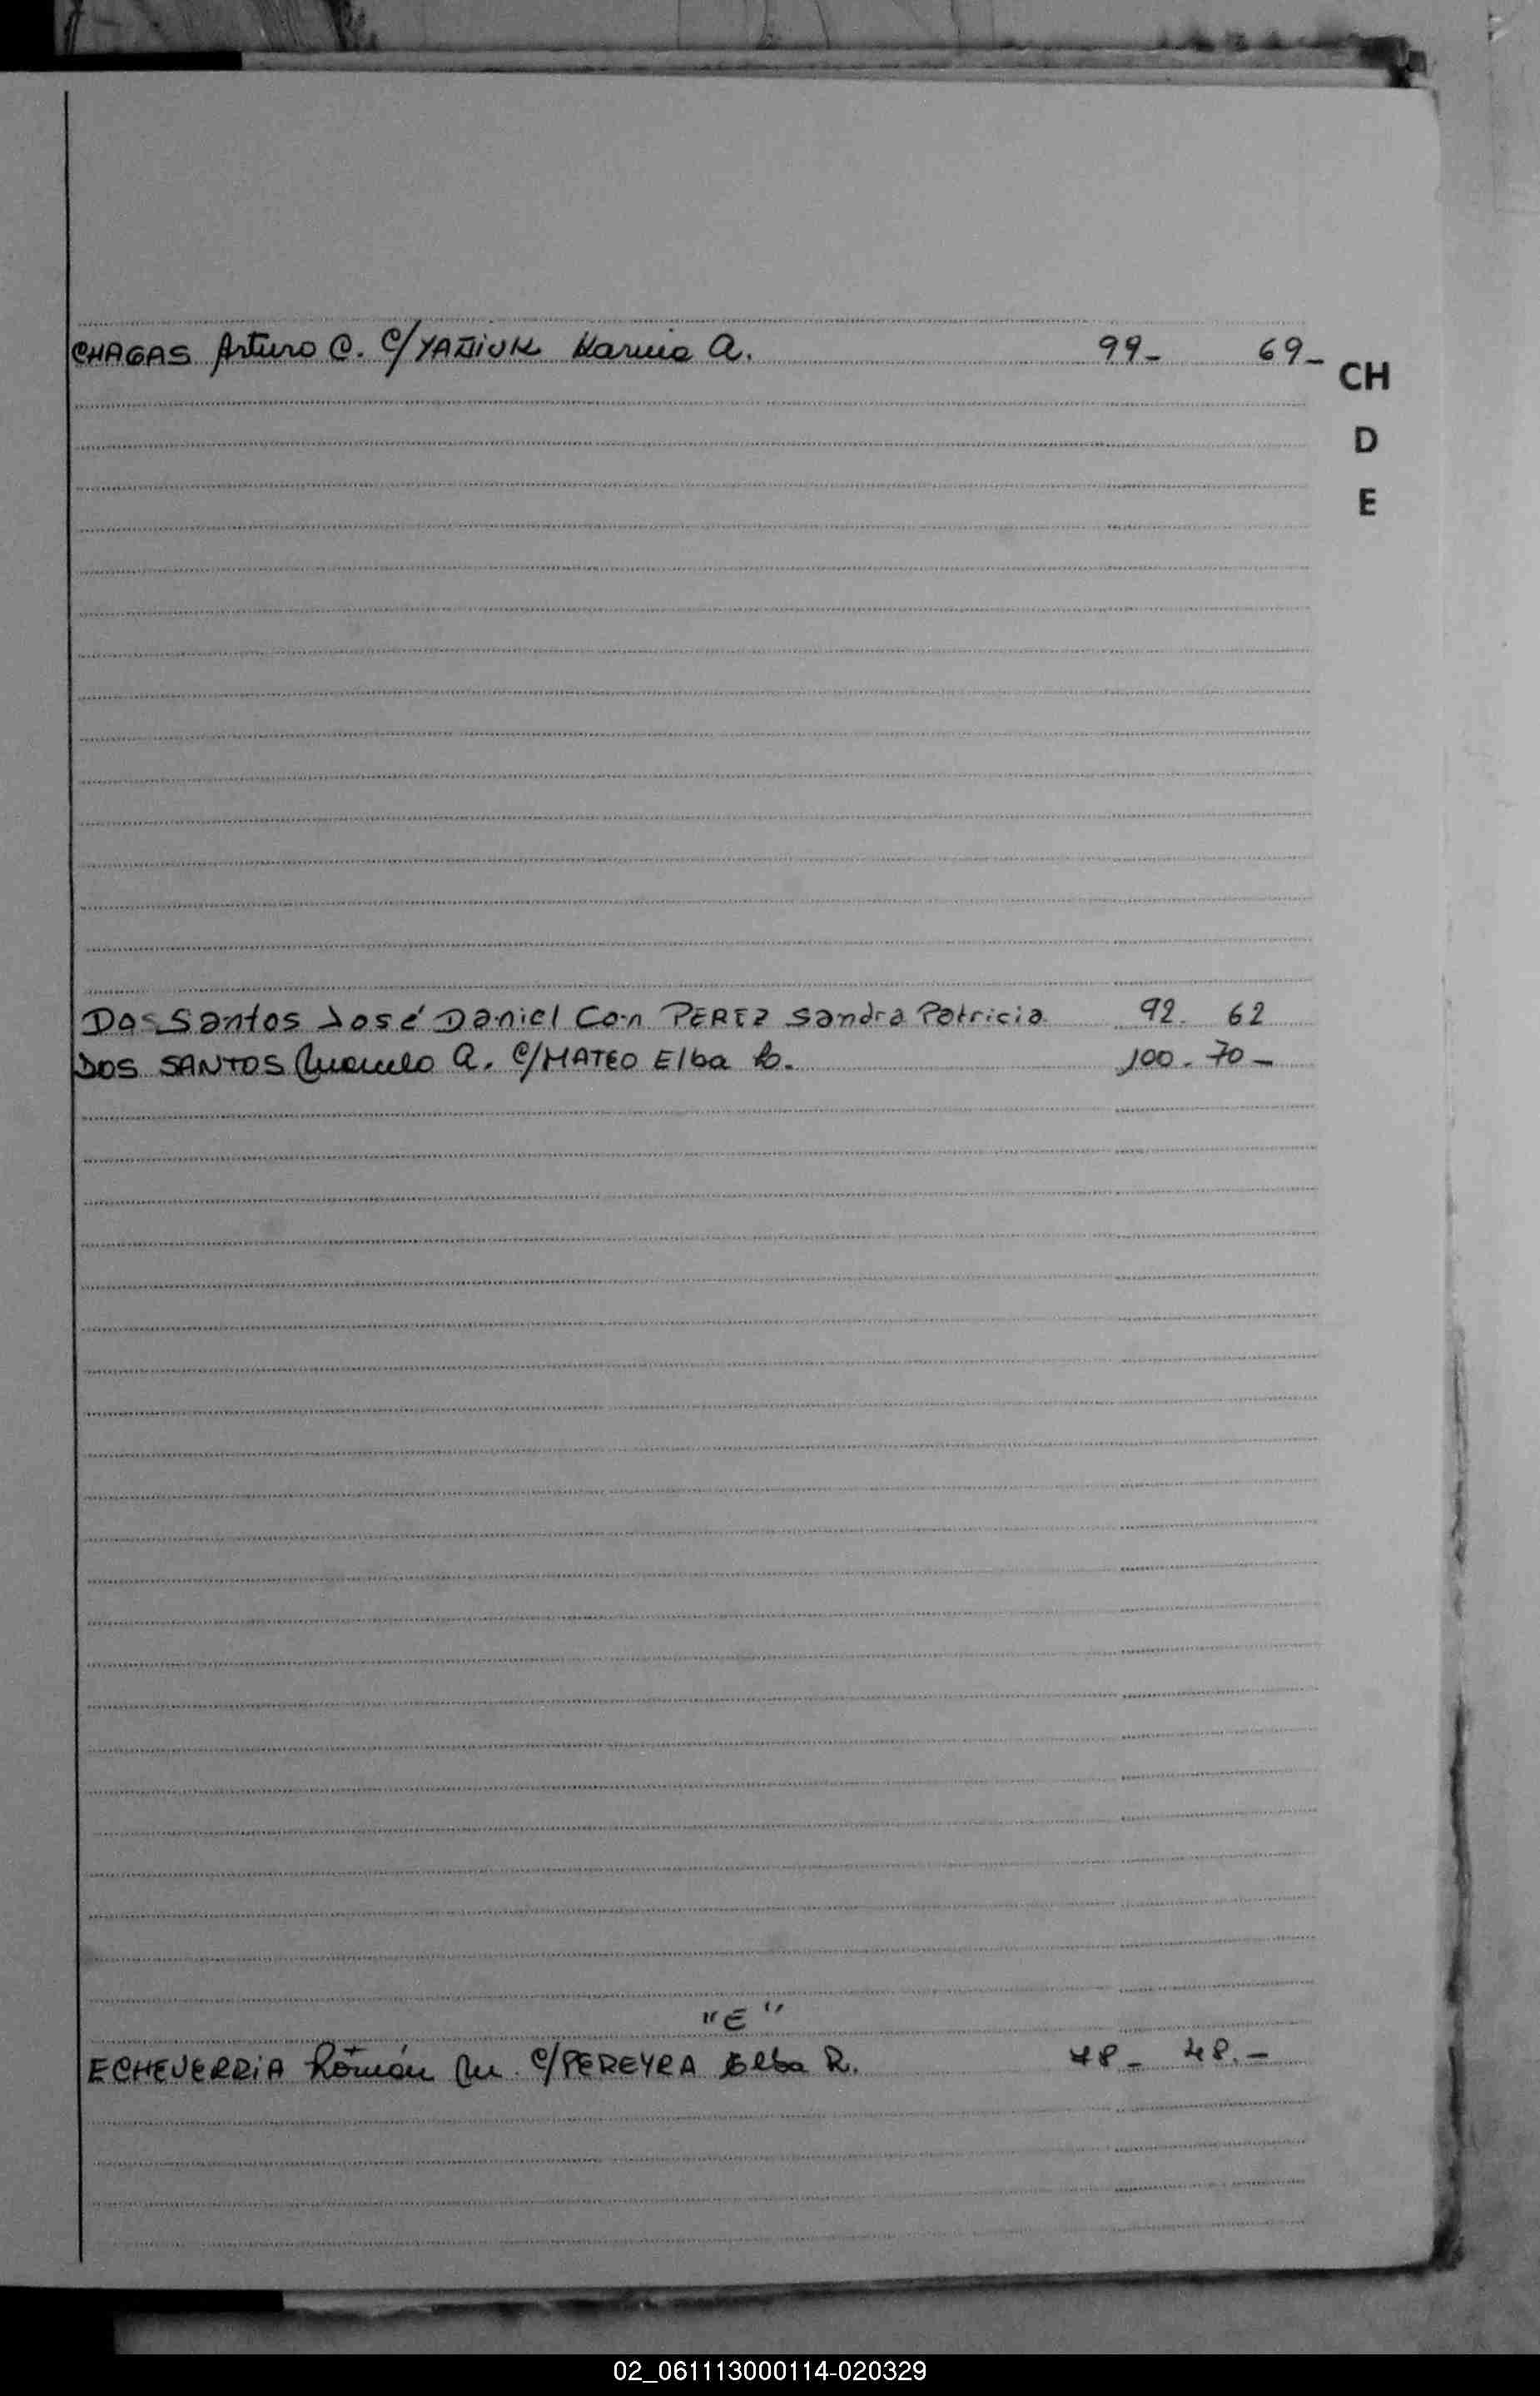 CHAGAS Arturo C. C/YAÑIUK Karina A. 99- 69-
CH
D
E
Dos Santos José Daniel Con PEREZ Sandra Patricia 92. 62
DOS SANTOS Marcelo A. C/MATEO Elba R. 100. 70-
"E"
ECHEVERRIA Román M. C/PEREYRA Elba R. 48- 48.-
02_061113000114-020329